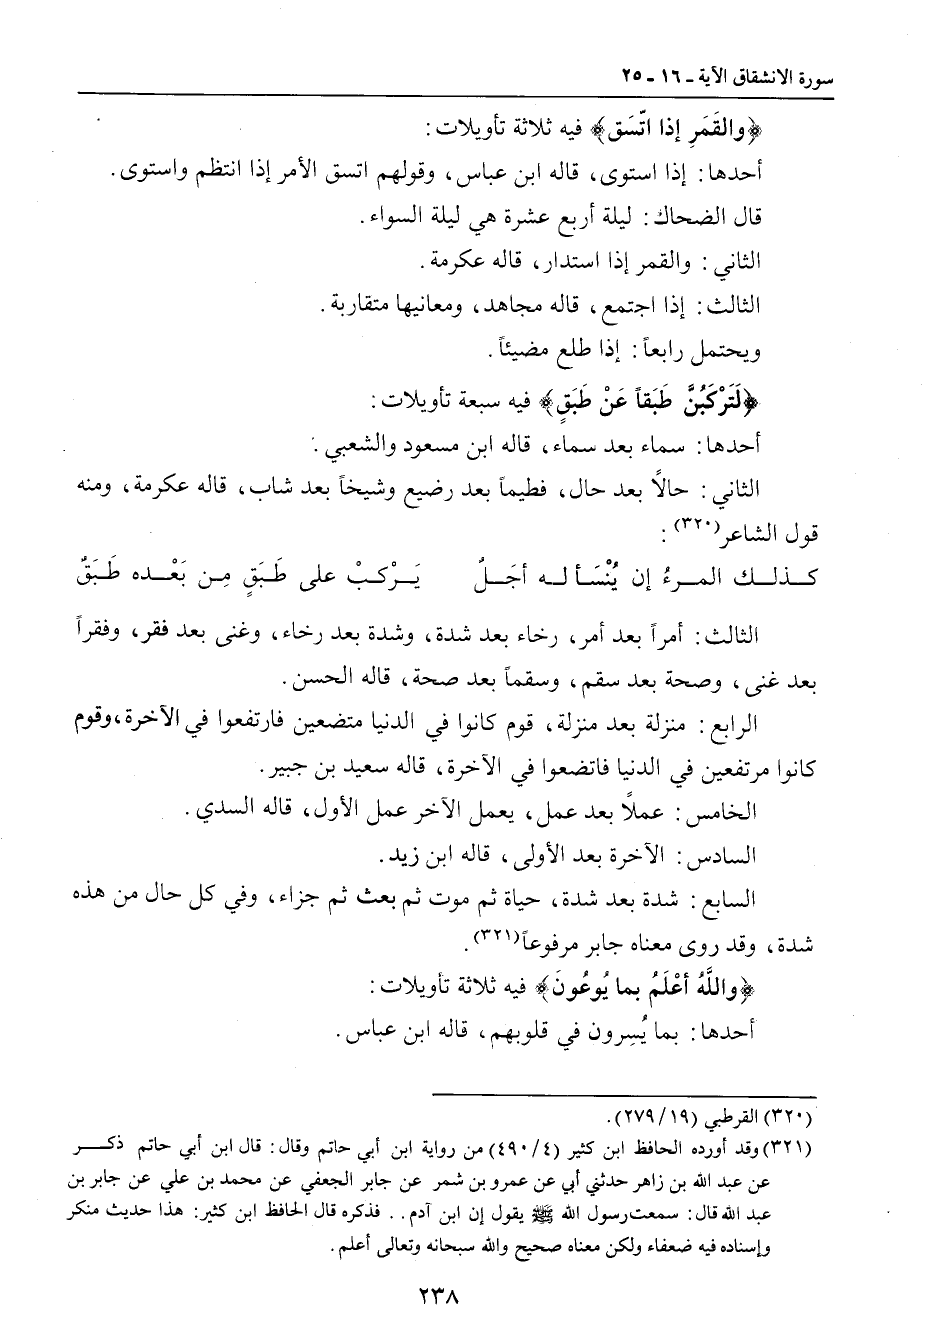 سورة الانشقاق الآية ـ ١٦ ـ ٢٥
﴿والقَمَرِ إذا اتّسَق﴾ فيه ثلاثة تأويلات:
أحدها: إذا استوى، قاله ابن عباس، وقولهم اتسق الأمر إذا انتظم واستوى.
قال الضحاك: ليلة أربع عشرة هي ليلة السواء.
الثاني: والقمر إذا استدار، قاله عكرمة.
الثالث: إذا اجتمع، قاله مجاهد، ومعانيها متقاربة.
ويحتمل رابعاً: إذا طلع مضيئاً.
﴿لَتَرْكَبُنَّ طَبَقاً عَنْ طَبَقٍ﴾ فيه سبعة تأويلات:
أحدها: سماء بعد سماء، قاله ابن مسعود والشعبي.
الثاني: حالاً بعد حال، فطيماً بعد رضيع وشيخاً بعد شاب، قاله عكرمة، ومنه
قول الشاعر(٣٢٠):
كـذلـك المـرءُ إن يُنْسَأ لـه أجَـلٌ يَـرْكبْ على طَبَقٍ مِـن بَعْـده طَبَقٌ
الثالث: أمراً بعد أمر، رخاء بعد شدة، وشدة بعد رخاء، وغنى بعد فقر، وفقراً
بعد غنى، وصحة بعد سقم، وسقماً بعد صحة، قاله الحسن.
الرابع: منزلة بعد منزلة، قوم كانوا في الدنيا متضعين فارتفعوا في الآخرة،وقوم
كانوا مرتفعين في الدنيا فاتضعوا في الآخرة، قاله سعيد بن جبير.
الخامس: عملاً بعد عمل، يعمل الآخر عمل الأول، قاله السدي.
السادس: الآخرة بعد الأولى، قاله ابن زيد.
السابع: شدة بعد شدة، حياة ثم موت ثم بعث ثم جزاء، وفي كل حال من هذه
شدة، وقد روى معناه جابر مرفوعاً(٣٢١).
﴿واللَّهُ أعْلَمُ بما يُوعُونَ﴾ فيه ثلاثة تأويلات:
أحدها: بما يُسِرون في قلوبهم، قاله ابن عباس.
(٣٢٠) القرطبي (١٩/ ٢٧٩).
(٣٢١) وقد أورده الحافظ ابن كثير (٤/ ٤٩٠) من رواية ابن أبي حاتم وقال: قال ابن أبي حاتم ذكـــر
عن عبد الله بن زاهر حدثني أبي عن عمرو بن شمر عن جابر الجعفي عن محمد بن علي عن جابر بن
عبد الله قال: سمعت رسول الله ﷺ يقول إن ابن آدم.. فذكره قال الحافظ ابن كثير: هذا حديث منكر
وإسناده فيه ضعفاء ولكن معناه صحيح والله سبحانه وتعالى أعلم.
٢٣٨